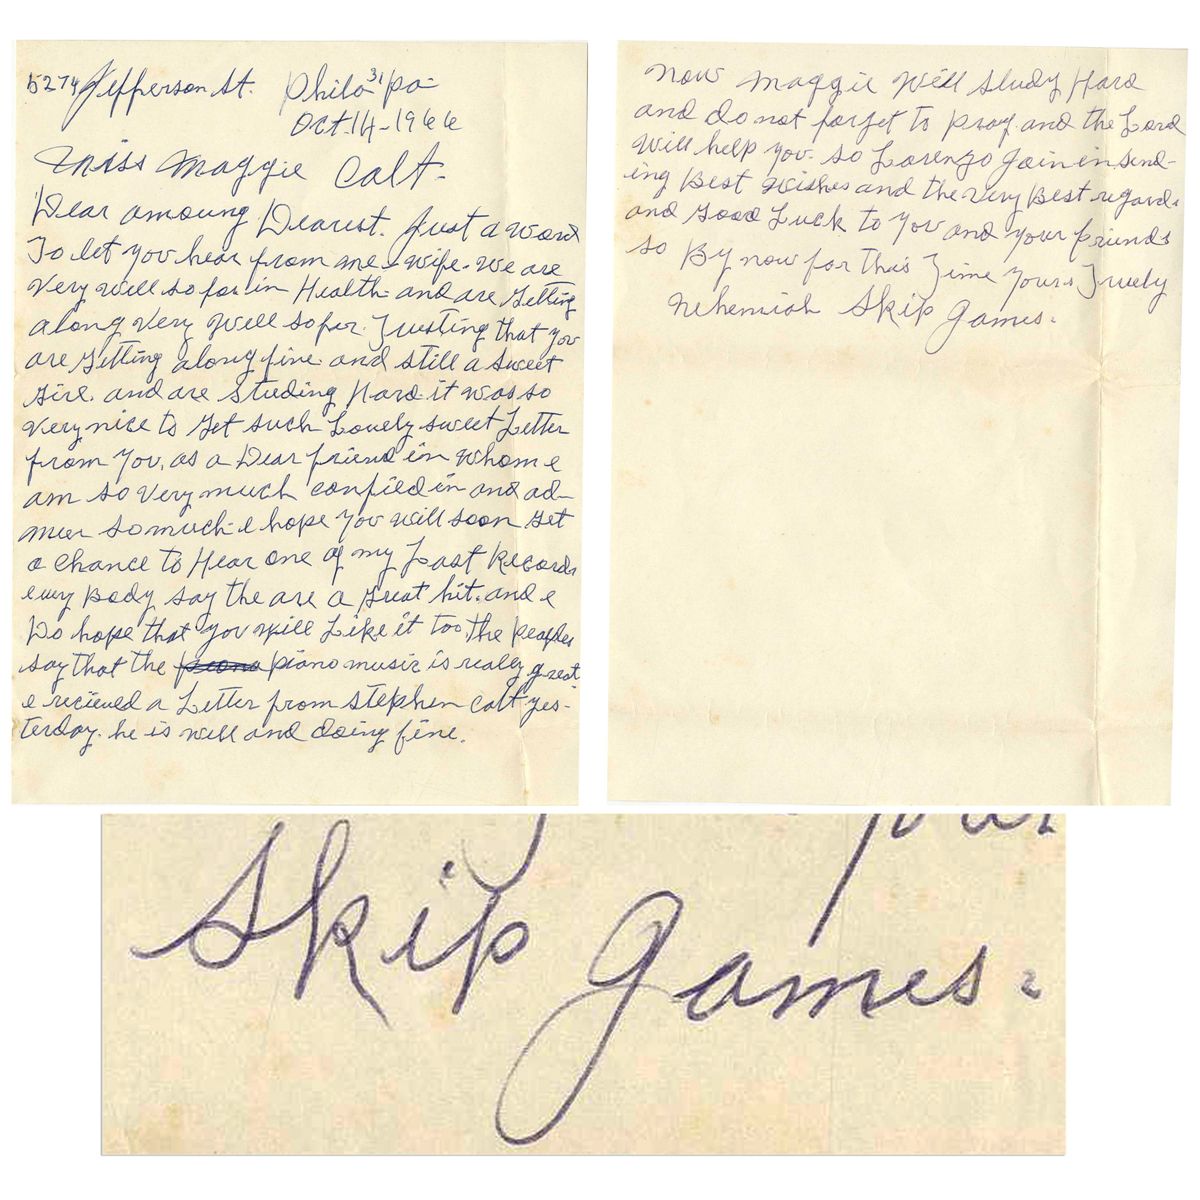 5274 Jefferson St. Phila 31 Pa
Oct-14-1966
Miss Maggie Calt.
Dear amoung Dearest. Just a word
To let you hear from me - wife. we are
very well so far in Health. and are getting
along very well so far. Trusting that you
are getting along fine. and still a sweet
girl. and are studing Hard. it was so
very nice to get such Lovely sweet Letter
from You, as a Dear friend in whom e
am so very much confied in and ad-
meer so much. e hope you will soon get
a chance to Hear one of my Last Records
every Body say the are a great hit. and e
Do hope that you will Like it too, the peoples
say that the piano music is really great
e recieved a Letter from Stephen Calt yes-
terday. he is well and doing fine.
now maggie will study Hard
and do not forget to pray. and the Lord
will help you. so Lorenzo Join in send-
ing Best wishes and the very Best regards
and good Luck to you and your friends
so By now for this Time yours Truely
Nehemiah Skip James.
Skip James.